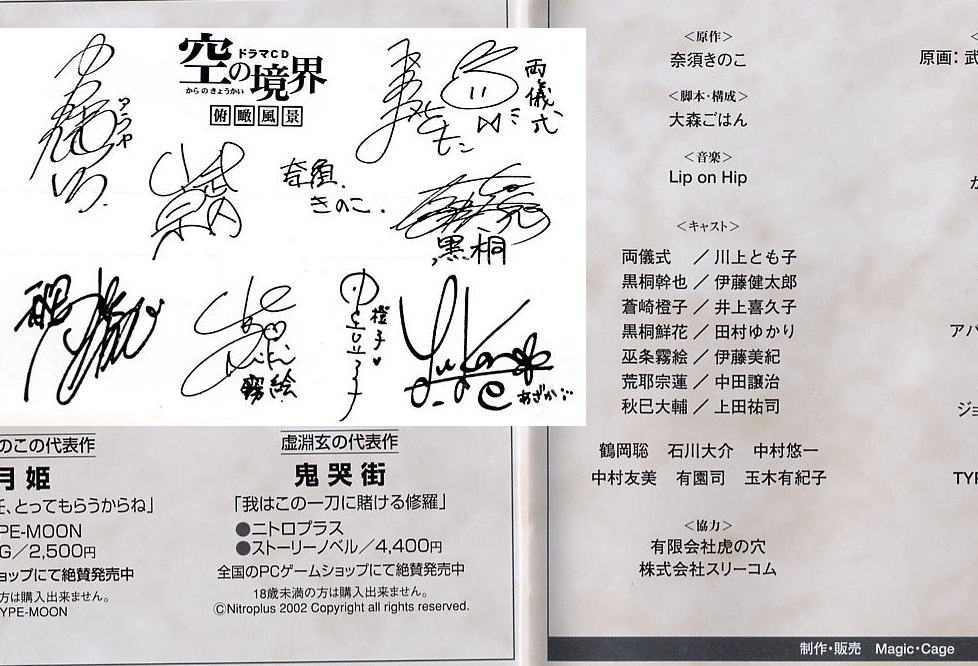 ドラマCD
空の境界
からのきょうかい
俯瞰風景
アラヤ
両儀式
奈須
きのこ.
黒桐
橙子
霧絵
あざか
のこの代表作
月姫
、とってもらうからね」
PE-MOON
G/2,500円
ョップにて絶賛発売中
方は購入出来ません。
YPE-MOON
虚淵玄の代表作
鬼哭街
「我はこの一刀に賭ける修羅」
●ニトロプラス
●ストーリーノベル/4,400円
全国のPCゲームショップにて絶賛発売中
18歳未満の方は購入出来ません。
©Nitroplus 2002 Copyright all rights reserved.
<原作>
奈須きのこ
<脚本・構成>
大森ごはん
<音楽>
Lip on Hip
<キャスト>
両儀式 / 川上とも子
黒桐幹也 / 伊藤健太郎
蒼崎橙子 / 井上喜久子
黒桐鮮花 / 田村ゆかり
巫条霧絵 / 伊藤美紀
荒耶宗蓮 / 中田譲治
秋巳大輔 / 上田祐司
鶴岡聡 石川大介 中村悠一
中村友美 有園司 玉木有紀子
<協力>
有限会社虎の穴
株式会社スリーコム
原画: 武
アパ
ジョ
TYP
制作・販売 Magic・Cage